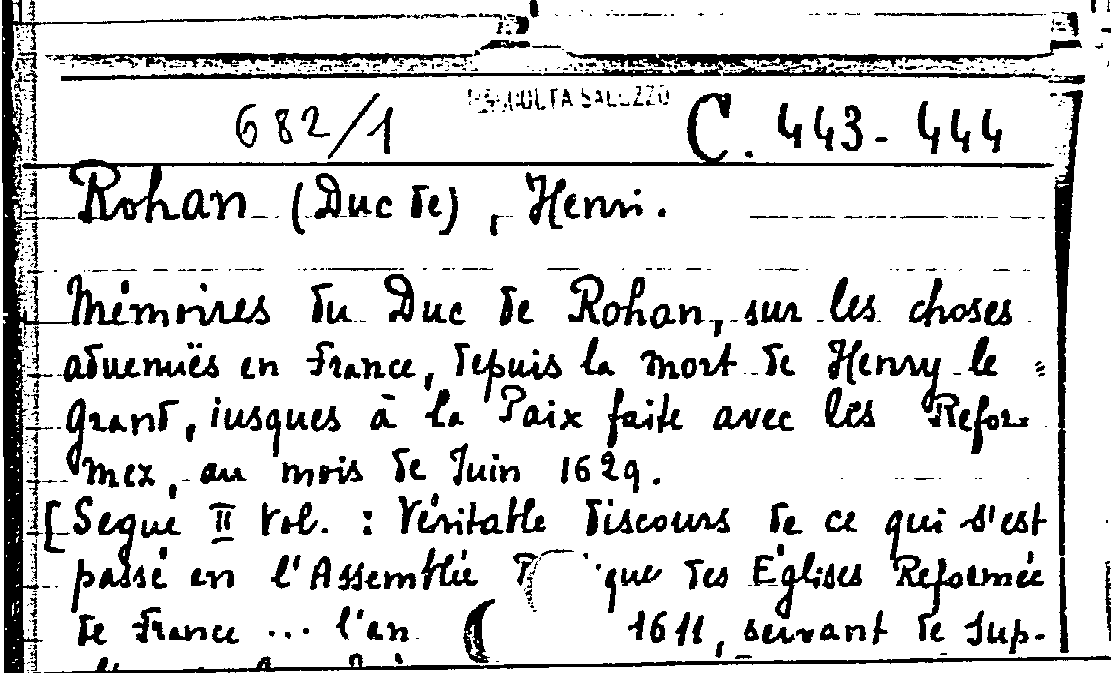 RACCOLTA SALUZZO
682/1 C. 443-444
Rohan (Duc de), Henri.
Mémoires du Duc de Rohan, sur les choses
aduenuës en France, depuis la mort de Henry le =
Grand, iusques à la Paix faite avec les Refor-
mez, au mois de Juin 1629.
[Segue II vol. : Véritable discours de ce qui s'est
passé en l'Assemblée des Églises Reformée
de France ... l'an 1611, servant de Sup-